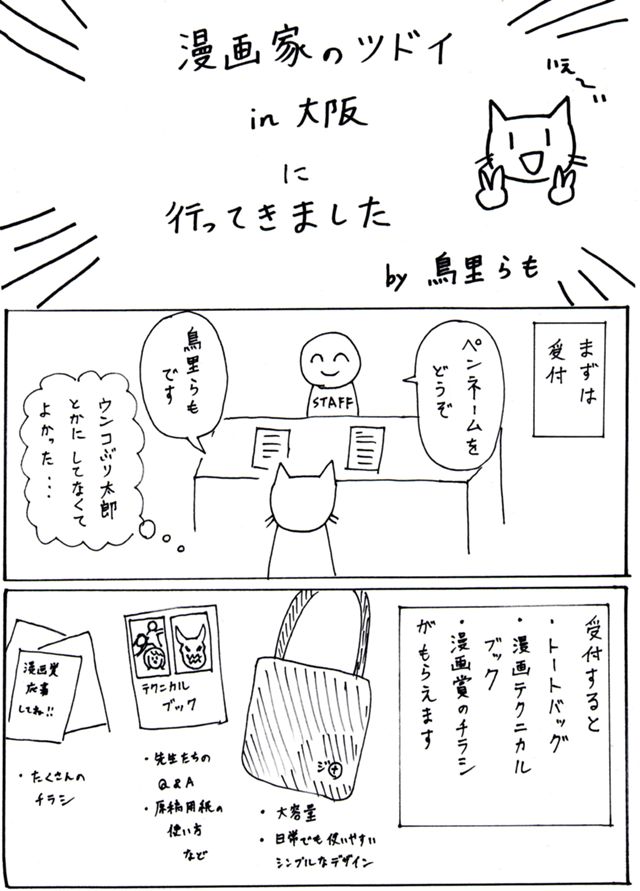 漫画家のツドイ
in 大阪
に
行ってきました
いぇ〜い
by 鳥里らも
まずは
受付
ペンネームを
どうぞ
STAFF
鳥里らも
です
ウンコぶり太郎
とかに してなくて
よかった・・・
受付すると
・トートバッグ
・漫画テクニカル
ブック
・漫画賞のチラシ
がもらえます
ジ+
・大容量
・日常でも使いやすい
シンプルなデザイン
テクニカル
ブック
・先生たちの
Q&A
・原稿用紙の
使い方
など
漫画賞
応募
してね!!
・たくさんの
チラシ